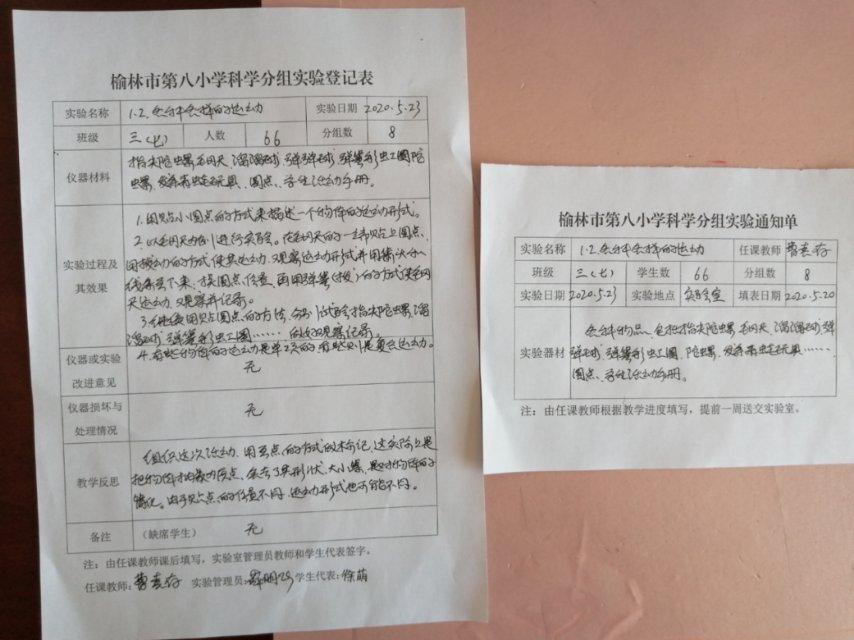 榆林市第八小学科学分组实验登记表
实验名称 1.2.各种各样的运动 实验日期 2020.5.23
班级 三(七) 人数 66 分组数 8
仪器材料
指尖陀螺、毛网天、溜溜球、弹弹球、弹簧彩虹圈、陀
螺、发条青蛙玩具、圆点、学生活动手册。
实验过程及
其效果
1.用贴小圆点的方式来描述一个物体的运动形式。
进行实验。在毛网天的一
用拨动的方式使其运动,观察运动形式并用箭头
下来,换圆点位置,再用弹簧
天运动,观察并记录。
3.继续用贴圆点的方法,分别试验指尖陀螺、溜
溜球、弹簧彩虹圈……的并观察记录。
4.有些物体的运动是单一的,有些则是复杂运动。
仪器或实验
改进意见
无
仪器损坏与
处理情况
无
教学反思
组织这次活动,用圆点的方式做标记,这实际上是
把物体抽象为质点,舍去了其形状、大小等,是对物体的
简化。由于贴点的位置不同,运动形式也可能不同。
备注 (缺席学生) 无
注:由任课教师课后填写,实验室管理员教师和学生代表签字。
任课教师: 实验管理员: 学生代表:徐萌
榆林市第八小学科学分组实验通知单
实验名称 1.2.各种各样的运动 任课教师
班级 三(七) 学生数 66 分组数 8
实验日期 2020.5.23 实验地点 实验室 填表日期 2020.5.20
实验器材
各种物品,包括指尖陀螺、毛网天、溜溜球、弹
弹球、弹簧彩虹圈、陀螺、发条青蛙玩具……
圆点、学生活动手册。
注:由任课教师根据教学进度填写,提前一周送交实验室。